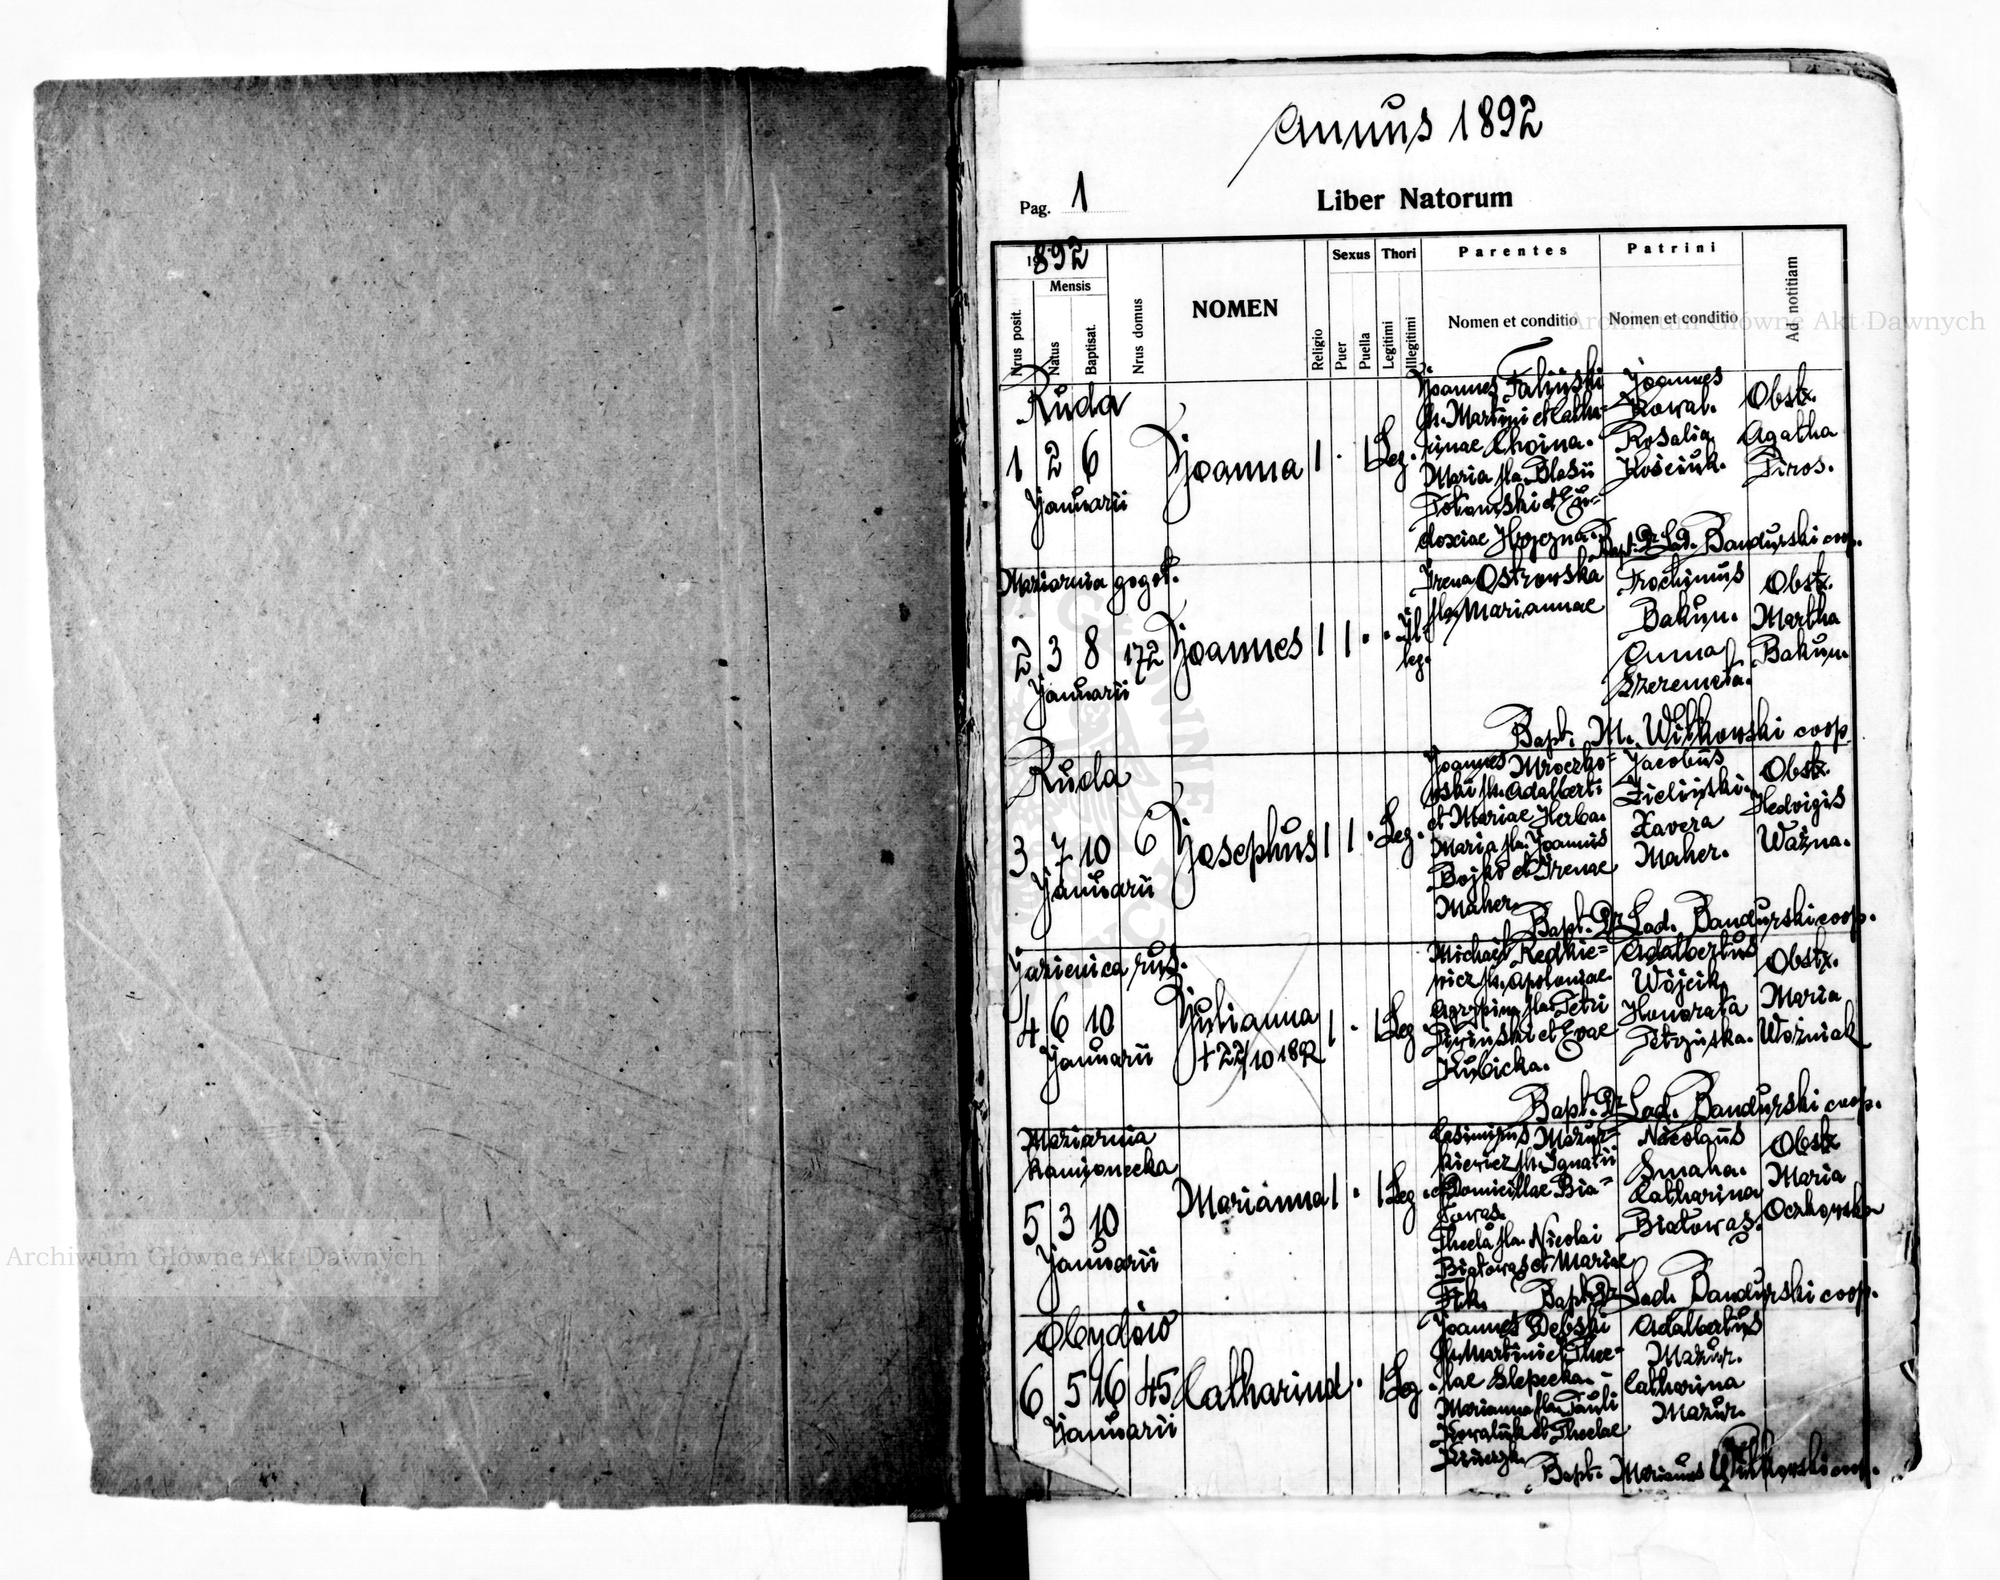 Annus 1892
Pag. 1
Liber Natorum
1892
Mensis
Nrus posit.
Natus
Baptisat.
Nrus domus
NOMEN
Religio
Sexus
Puer
Puella
Thori
Legitimi
Illegitimi
Parentes
Nomen et conditio
Patrini
Nomen et conditio
Ad notitiam
Archiwum Główne Akt Dawnych
Ruda
1 2 6
Januarii
Joanna 1 . 1 Leg.
Joannes Faliński
fs. Martini et Catha-
rinae Choina.
Maria fla. Blasii
doxiae
Joannes
Kowal.
Rosalia
Kościuk.
Obstx.
Agatha
Piros.
Bapt. Dr Lad. Bandurski coop.
Maziarnia
2 3 8 172
Januarii
Joannes 1 1 . . Il-
leg.
Irena Ostrowska
fla. Mariannae
Trochimus
Bakun.
Anna
Szeremeta.
Obstx.
Martha
Bakun.
Bapt. M. Wilkowski coop.
Ruda
3 7 10 6
Januarii
Josephus 1 1 . Leg.
Joannes Mroczko-
wski fs. Adalberti
et Mariae Herba.
Maria fla. Joannis
Bojko et Irenae
Maher.
Jacobus
Zieliński.
Xavera
Maher.
Obstx.
Hedvigis
Ważna.
Bapt. Dr Lad. Bandurski coop.
Jazienica rus.
4 6 10
Januarii
Julianna 1 . 1 Leg
+ 22/10 1892
Michael Redkie=
wicz fs. Apoloniae
Agrypina fla. Petri
et Evae
Kubicka.
Adalbertus
Wójcik
Honorata
Obstx.
Maria
Woźniak
Bapt. Dr Lad. Bandurski coop.
Maziarnia
Kamionecka
5 3 10
Januarii
Marianna 1 . 1 Leg.
Casimirus Mazur-
kiewicz fs. Ignatii
et Domicillae Bia=
łowąs.
Thecla fla. Nicolai
Białowąs et Mariae
Nicolaus
Smaha.
Catharina
Białowąs.
Obstx
Maria
Oczkowska
Bapt. Dr Lad. Bandurski coop.
Archiwum Główne Akt Dawnych
Obydów
6 5 16 45
Januarii
Catharina 1 . 1 Leg.
Joannes Dębski
fs. Martini et Thec-
lae Slepecka.-
Marianna fla. Pauli
Kowaluk et Theclae
Adalbertus
Mazur.
Catharina
Mazur.
Bapt. Marianus Wilkowski coop.